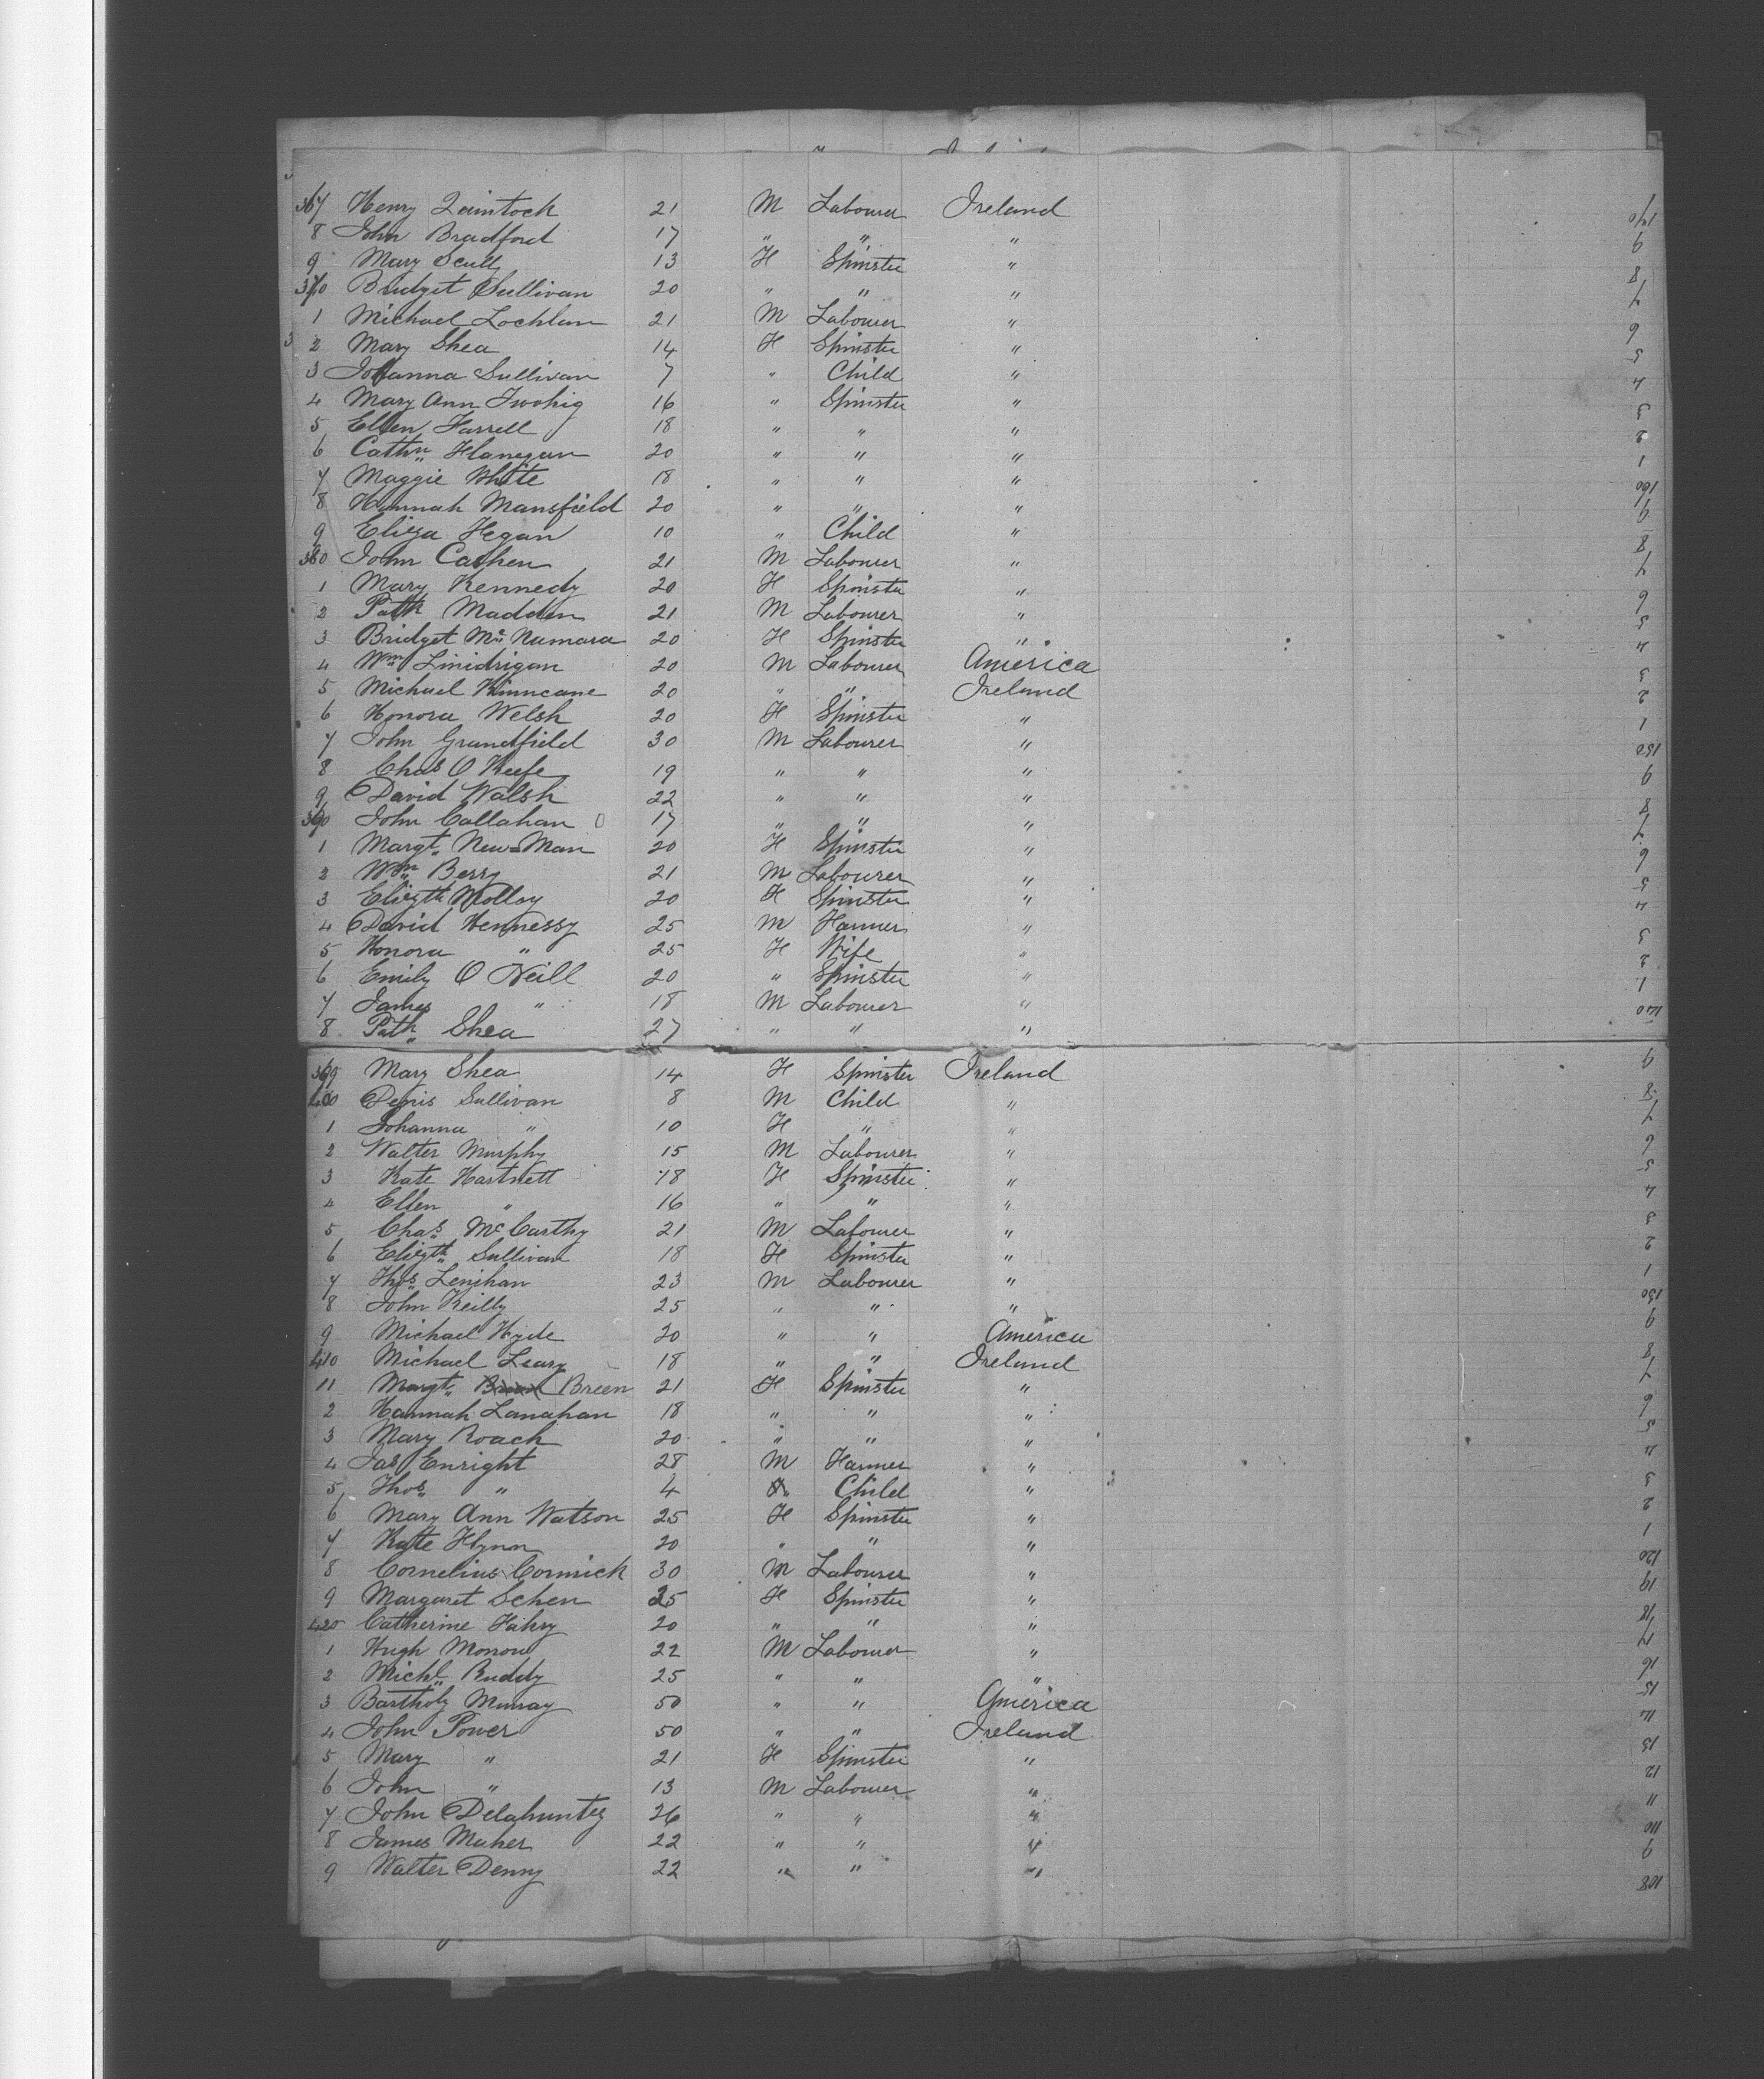 367 Henry Zeintock 21 M Labourer Ireland
8 John Bradford 17 " " "
9 Mary Scully 13 F Spinster "
370 Bridget Sullivan 20 " " "
1 Michael Lochlan 21 M Labourer "
2 Mary Shea 14 F Spinster "
3 Johanna Sullivan 7 " Child "
4 Mary Ann Twohig 16 " Spinster "
5 Ellen Farrell 18 " " "
6 Cathn Flanegan 20 " " "
7 Maggie White 18 " " "
8 Hannah Mansfield 20 " " "
9 Eliza Hegan 10 " Child "
380 John Cashen 21 M Labourer "
1 Mary Kennedy 20 F Spinster "
2 Patk Madden 21 M Labourer "
3 Bridget McNamara 20 F Spinster "
4 Wm Linidrigan 20 M Labourer America
5 Michael Kinncane 20 " " Ireland
6 Honora Welsh 20 F Spinster "
7 John Grandfield 30 M Labourer "
8 Chas O Keefe 19 " " "
9 David Walsh 22 " " "
390 John Callahan 17 " " "
1 Margt New=Man 20 F Spinster "
2 Wm Berry 21 M Labourer "
3 Elizth Molloy 20 F Spinster "
4 David Hennessy 25 M Farmer "
5 Honora " 25 F Wife "
6 Emily O Neill 20 " Spinster "
7 James " 18 M Labourer "
8 Patk Shea 27 " " "
399 Mary Shea 14 F Spinster Ireland
400 Denis Sullivan 8 M Child "
1 Johanna " 10 F " "
2 Walter Murphy 15 M Labourer "
3 Kate Hartnett 18 F Spinster "
4 Ellen " 16 " " "
5 Chas McCarthy 21 M Labourer "
6 Elizth Sullivan 18 F Spinster "
7 Thos Lenihan 23 M Labourer "
8 John Reilly 25 " " "
9 Michael Hyde 20 " " America
410 Michael Leary 18 " " Ireland
11 Margt Breen 21 F Spinster "
2 Hannah Lanahan 18 " " "
3 Mary Roach 20 " " "
4 Jas Enright 28 M Farmer "
5 Thos " 4 " Child "
6 Mary Ann Watson 25 F Spinster "
7 Kate Flynn 20 " " "
8 Cornelius Cormick 30 M Labourer "
9 Margaret Schen 25 F Spinster "
420 Catherine Fahry 20 " " "
1 Hugh Monow 22 M Labourer "
2 Michl Ruddy 25 " " "
3 Bartholy Murray 50 " " America
4 John Power 50 " " Ireland
5 Mary " 21 F Spinster "
6 John " 13 M Labourer "
7 John Delahuntey 26 " " "
8 James Maher 22 " " "
9 Walter Denny 22 " " "